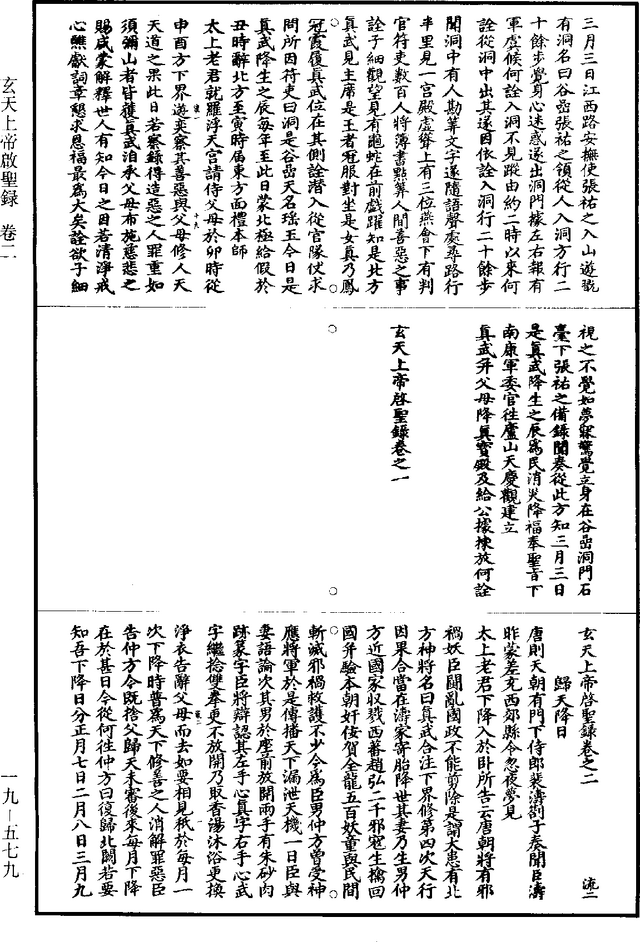 玄天上帝啟聖録 卷二
一九—五七九
三月三日江西路安撫使張祐之入山遊翫
有洞名曰谷嵒張祐之領從人入洞方行二
十餘步覺身心迷惑遂出洞門據左右報有
軍虞候何詮入洞不見蹤由約二時以來何
詮從洞中出其遂因依詮入洞行二十餘步
聞洞中有人勘筭文字遂隨語聲處尋路行
半里見一宮殿虛聳上有三位燕會下有判
官符吏數百人將簿書點筭人間善惡之事
詮子細觀望見有龜蛇在前戲躍知是北方
真武見主席是王者冠服對坐是女真乃鳳
冠霞履真武位在其側詮潛入從官隊仗求
問所因符吏曰洞是谷嵒天名瑶玉今日是
真武降生之辰每年至此日蒙北極給假於
丑時辭北方至寅時屆東方面禮本師
太上老君就羅浮天宮請侍父母於卯時從
申酉方下界遊奕察其善惡與父母修人天
天道之果此日若察録得造惡之人罪重如
須彌山者皆獲真武洎承父母布施慈悲之
賜咸蒙解釋世人有知今日之因若清淨戒
心醮獻詞章懇求恩福最為大矣詮欲子細
視之不覺如夢寐驚覺立身在谷嵒洞門石
臺下張祐之備録聞奏從此方知三月三日
是真武降生之辰為民消災降福奉聖旨下
南康軍委官往廬山天慶觀建立
真武并父母降真寶殿及給公據揀放何詮
玄天上帝啓聖録卷之一
玄天上帝啓聖録卷之二 流二
歸天降日
唐則天朝有門下侍郎裴濤劄子奏聞臣濤
昨蒙差充西郊縣令忽夜夢見
太上老君下降入於卧所告云唐朝將有邪
禍妖臣闘亂國政不能剪除是諭大患有北
方神將名曰真武合注下界修第四次天行
因果合當在濤家寄胎降世其妻乃生男仲
方近國家收戮西蕃趙弘二千邪寇生擒回
國并驗本朝奸佞賀全龍五百妖童與民間
斬滅邪禍救護不少今為臣男仲方曾受神
應將軍於是傳播天下漏泄天機一日臣與
妻語論次其男於座前放開兩手有朱砂肉
跡篆字臣將辯認其左手心真字右手心武
字繼捻雙拳更不放開乃取香湯沐浴更換
淨衣告辭父母而去如要相見秖於每月一
次下降時普為天下修善之人消解罪惡臣
告仲方今既捨父歸天未審後來每月下降
在於甚日今從何徃仲方曰復歸北闕若要
知吾下降日分正月七日二月八日三月九